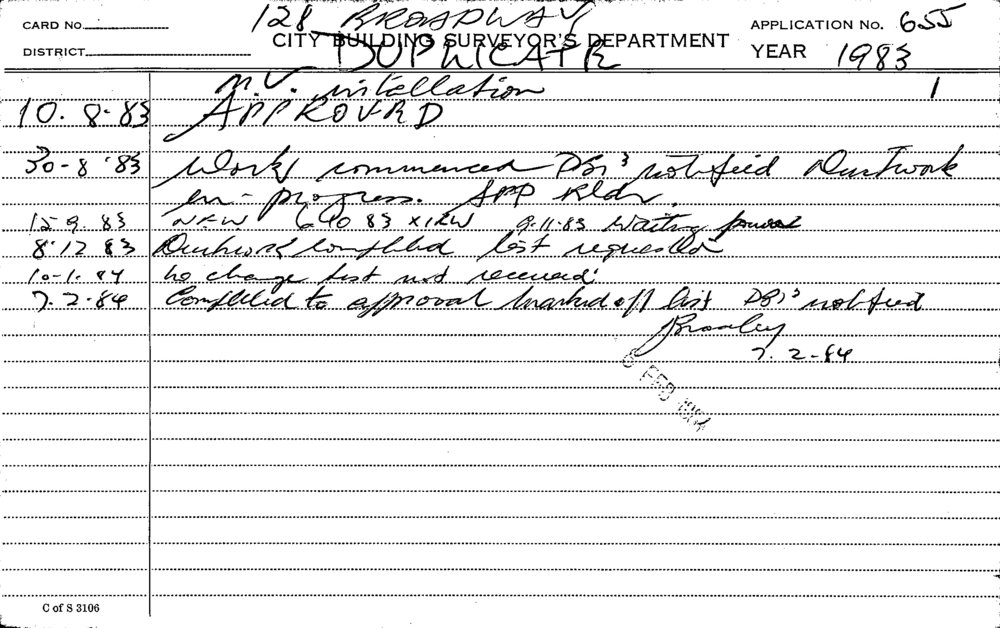 128 BROADWAY
CARD No.
APPLICATION No. 655
CITY BUILDING SURVEYOR'S DEPARTMENT
DISTRICT
DUPLICATE
YEAR 1983
M.V. installation 1
10. 8. 83 APPROVED
30-8 '83 Work commenced DBS notified Ductwork
in-progress. APP Rldr.
12 9. 83 NEW 640 83 9.11.83 Waiting
8.12 83 Ductwork completed test requested
10-1. 84 no change test not received
7. 2. 84 Completed to approval marked off list DBS notified
Bromley
7. 2-84
FEB 1984
C of S 3106